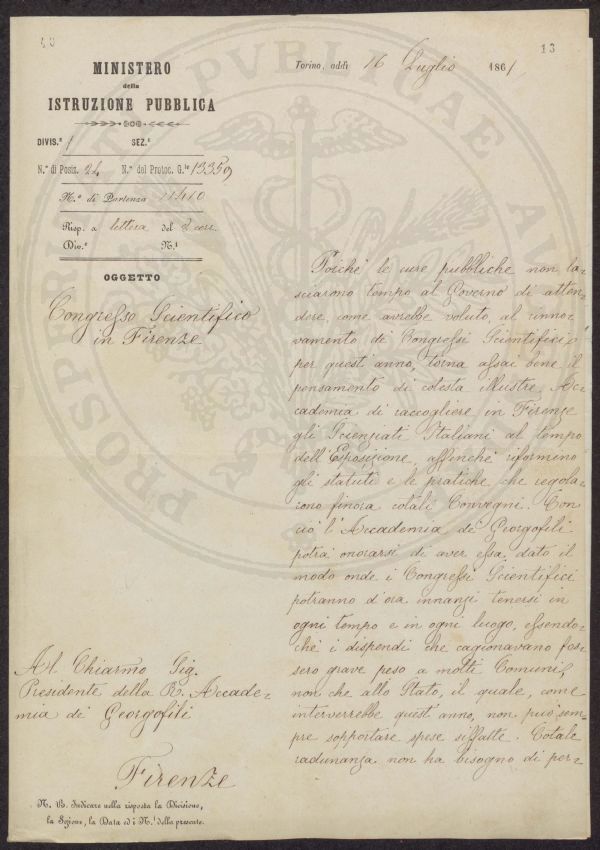 40
13
MINISTERO
della
ISTRUZIONE PUBBLICA
DIVIS.e 1 SEZ.e
N.o di Posiz. 24 N.o del Protoc. G.le 13359
N.o di Partenza 11410
Risp. a lettera del 2 corr.
Div.e N.o
OGGETTO
Congresso Scientifico
in Firenze
Torino, addì 16 Luglio 1861
Poichè le cure pubbliche non la-
sciarono tempo al Governo di atten-
dere, come avrebbe voluto, al rinno-
vamento de' Congressi Scientifici
per quest'anno, torna assai bene il
pensamento di cotesta illustre Ac-
cademia di raccogliere in Firenze
gli Scienziati Italiani al tempo
dell'Esposizione, affinchè riformino
gli statuti e le pratiche, che regola-
rono finora cotali Convegni. Con
ciò l'Accademia de' Georgofili
potrà onorarsi di aver essa dato il
modo onde i Congressi Scientifici
potranno d'ora innanzi tenersi in
ogni tempo e in ogni luogo, essendo-
chè i dispendi che cagionavano fos-
sero grave peso a molti Comuni,
non che allo Stato, il quale, come
interverrebbe quest'anno, non può sem-
pre sopportare spese siffatte. Cotale
radunanza non ha bisogno di per-
Al Chiarmo Sig.
Presidente della R. Accade-
mia de' Georgofili
Firenze
N. B. Indicare nella risposta la Divisione,
la Sezione, la Data ed i N.i della presente.
PROSPERITATI PUBLICAE AU